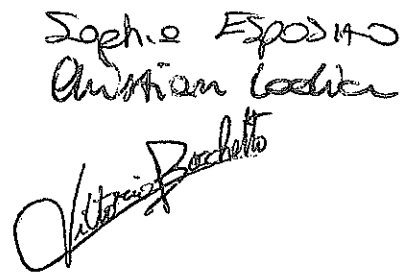 Sophie Esposito
Christian
Vittorio Borchetto